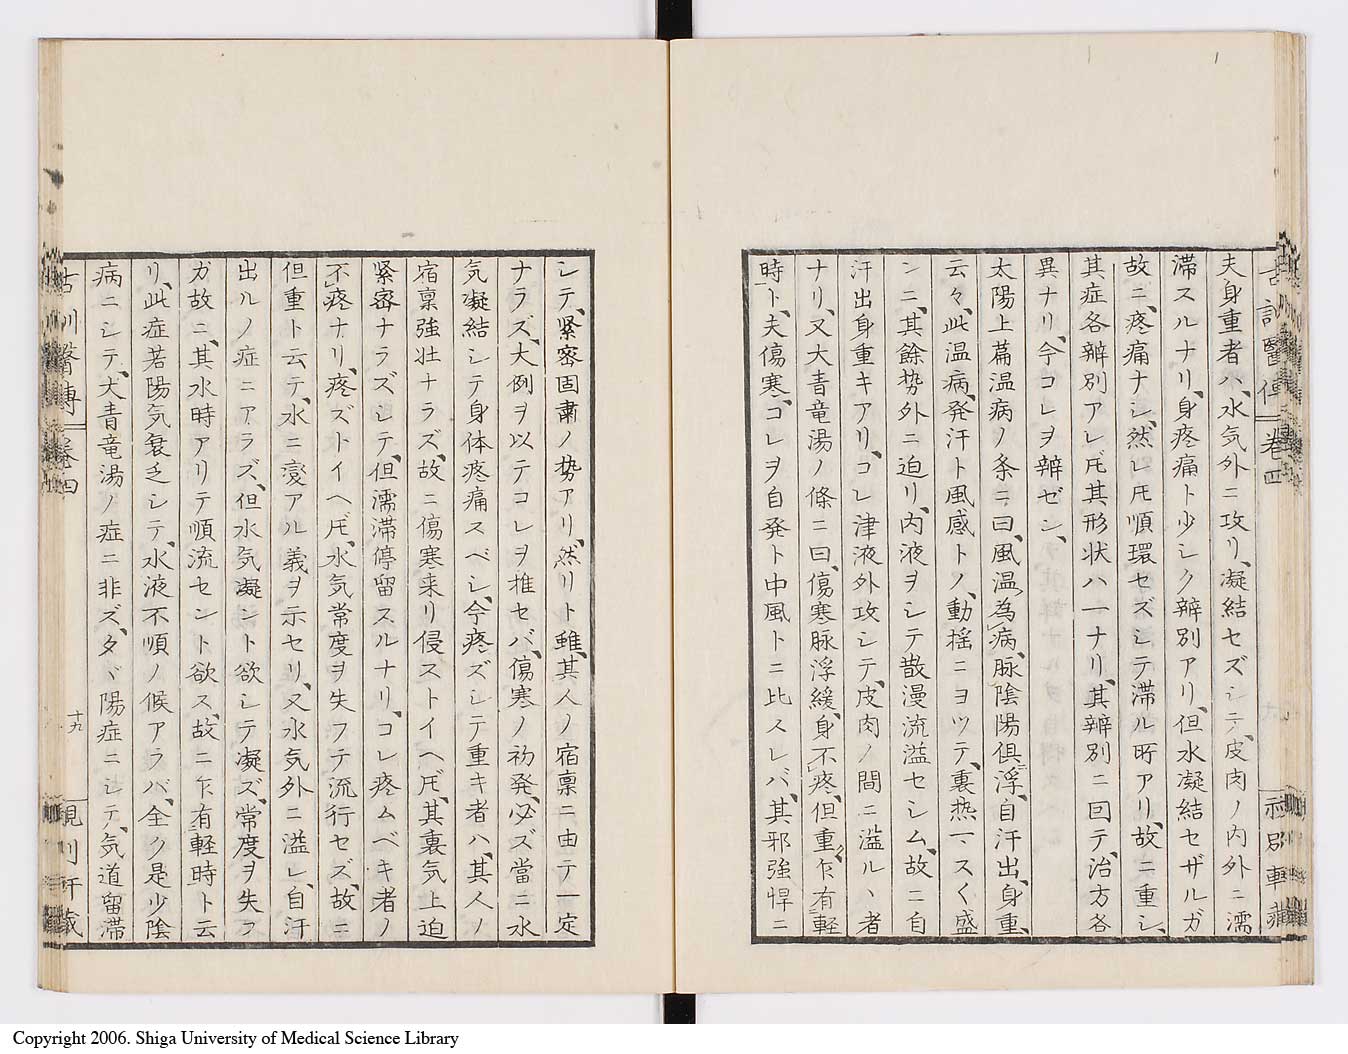 夫身重者ハ、水気外ニ攻リ、凝結セズシテ、皮肉ノ内外ニ濡
滞スルナリ、身疼痛ト少シク辨別アリ、但水凝結セザルガ
故ニ、疼痛ナシ、然レ𪜈順環セズシテ滞ル所アリ、故ニ重シ、
其症各辨別アレ𪜈其形状ハ一ナリ、其辨別ニ曰テ、治方各
異ナリ、今コレヲ辨ゼン、
太陽上篇温病ノ条ニ曰、風温為病、脈陰陽倶浮、自汗出、身重、
云々、此温病、発汗ト風感トノ、動揺ニヨツテ、裏熱一スく盛
ンニ、其餘势外ニ迫リ、内液ヲシテ散漫流溢セシム、故ニ自
汗出身重キアリ、コレ津液外攻シテ、皮肉ノ間ニ溢ルヽ者
ナリ、又大青竜湯ノ條ニ曰、傷寒脉浮緩、身不疼、但重、乍有軽
時ト、夫傷寒、コレヲ自発ト中風トニ比スレバ、其邪強悍ニ
シテ、緊密固肅ノ势アリ、然リト雖、其人ノ宿稟ニ由テ一定
ナラズ、大例ヲ以テコレヲ推セバ、傷寒ノ初発、必ズ當ニ水
気凝結シテ身体疼痛スベシ、今疼ズシテ重キ者ハ、其人ノ
宿稟強壮ナラズ、故ニ傷寒来リ侵ストイヘ𪜈、其裏気上迫
緊密ナラズシテ、但濡滞停留スルナリ、コレ疼ムベキ者ノ
不疼ナリ、疼ズトイヘ𪜈、水気常度ヲ失フテ流行セズ、故ニ
但重ト云テ、水ニ変アル義ヲ示セリ、又水気外ニ溢レ、自汗
出ルノ症ニアラズ、但水気凝ント欲シテ凝ズ、常度ヲ失フ
ガ故ニ、其水時アリテ順流セント欲ス、故ニ乍有軽時ト云
リ、此症若陽気衰乏シテ、水液不順ノ候アラバ、全ク是少陰
病ニシテ、大青竜湯ノ症ニ非ズ、タヾ陽症ニシテ、気道留滞
古訓醫傳 巻四
十九